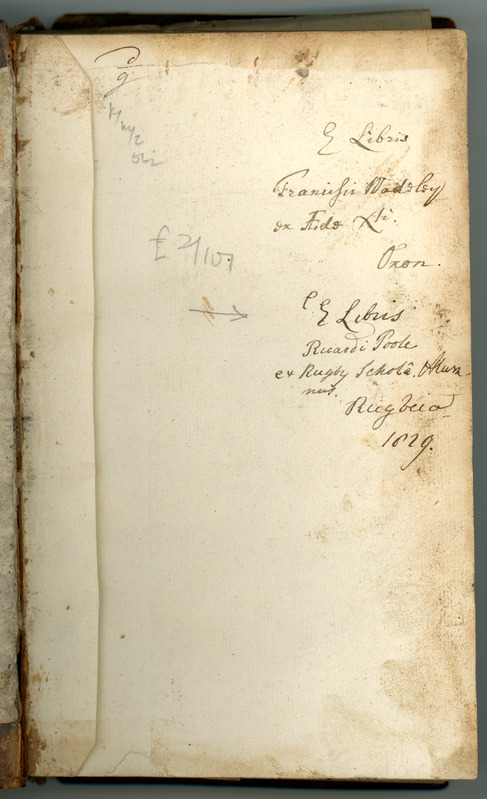 d/g
E Libris
Francisci Wadsley
ex Æde Xti.
Oxon.
£2/10/
E Libris
Ricardi Poole
ex Rugby Scholâ. Alum-
nus.
Rugbeia
1829.